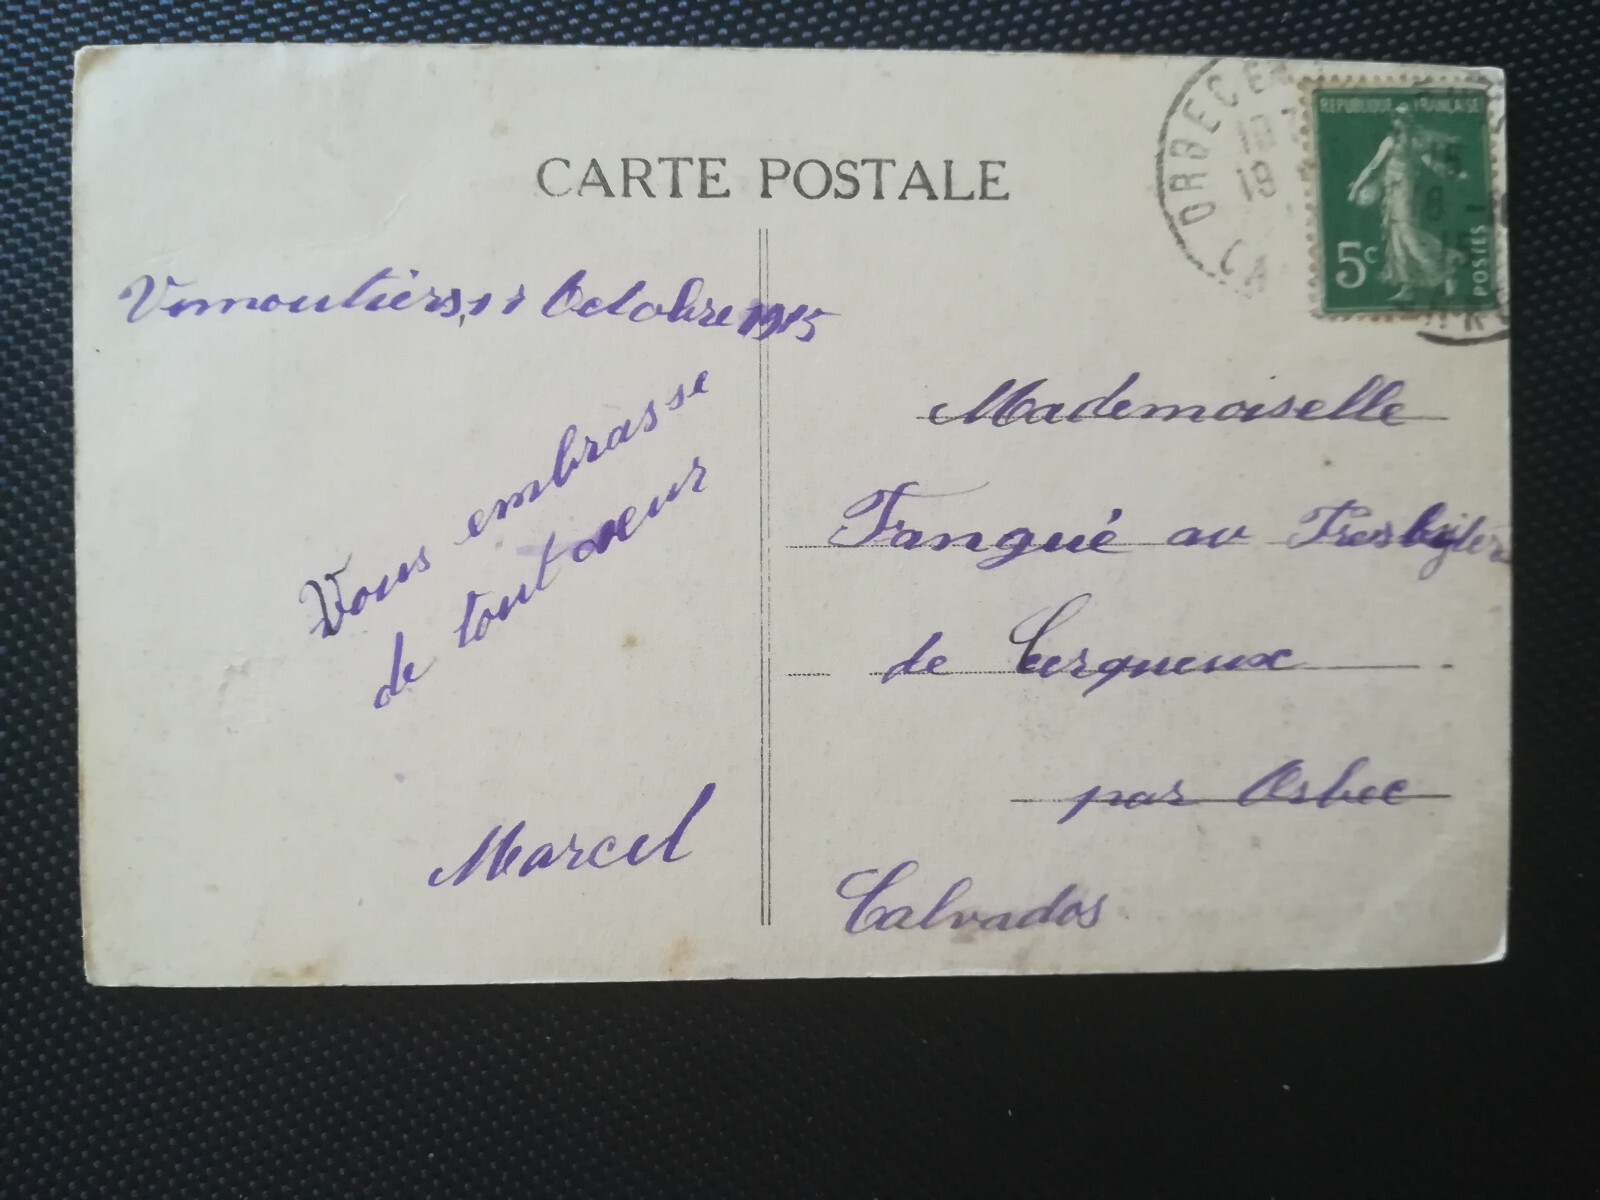 CARTE POSTALE
RÉPUBLIQUE FRANÇAISE
5c
POSTES
ORBEC
Vimoutiers, 11 Octobre 1915
Vous embrasse
de tout cœur
Marcel
Mademoiselle
Fangué au Presbytère
de Cerqueux
par Orbec
Calvados